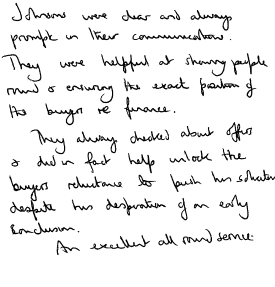 Johnsons were clear and always
prompt in their communications.
They were helpful at showing people
round & ensuring the exact position of
the buyer re finance.
They always checked about offers
& did in fact help unlock the
buyers reluctance to push his solicitor
despite his desperation of an early
conclusion.
An excellent all round service.